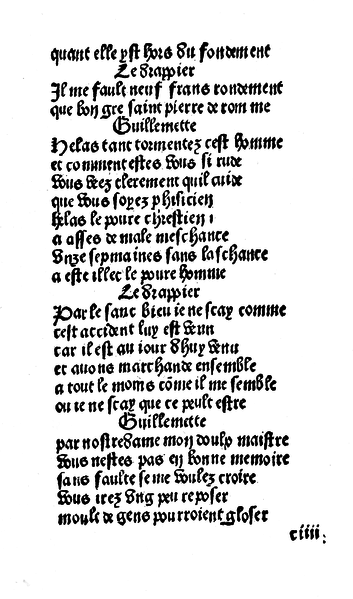 quant elle yst hors du fondement
Le drappier
Il me fault neuf frans rondement
que bon gre saint pierre de rom me
Guillemette
Helas tant tormentez cest homme
et comment estes vous si rude
vous veez clerement quil cuide
que vous soyez phisicien
helas le poure chrestien
a asses de male meschance
vnze sepmaines sans laschance
a este illec le poure homme
Le drappier
Par le sanc bieu ie ne scay comme
cest accident luy est venu
car il est au iour dhuy venu
et auons marchande ensemble
a tout le moins cõme il me semble
ou ie ne scay que ce peult estre
Guillemette
par nostre dame mon doulx maistre
vous nestes pas en bonne memoire
sans faulte se me voulez croire
vous irez vng peu reposer
moult de gens pourroient gloser
ciiii.